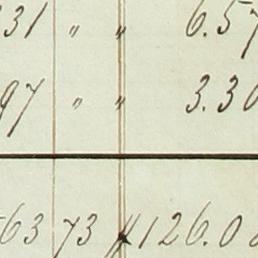 31 " " 6.57
97 " " 3.30
63 73 $126.0